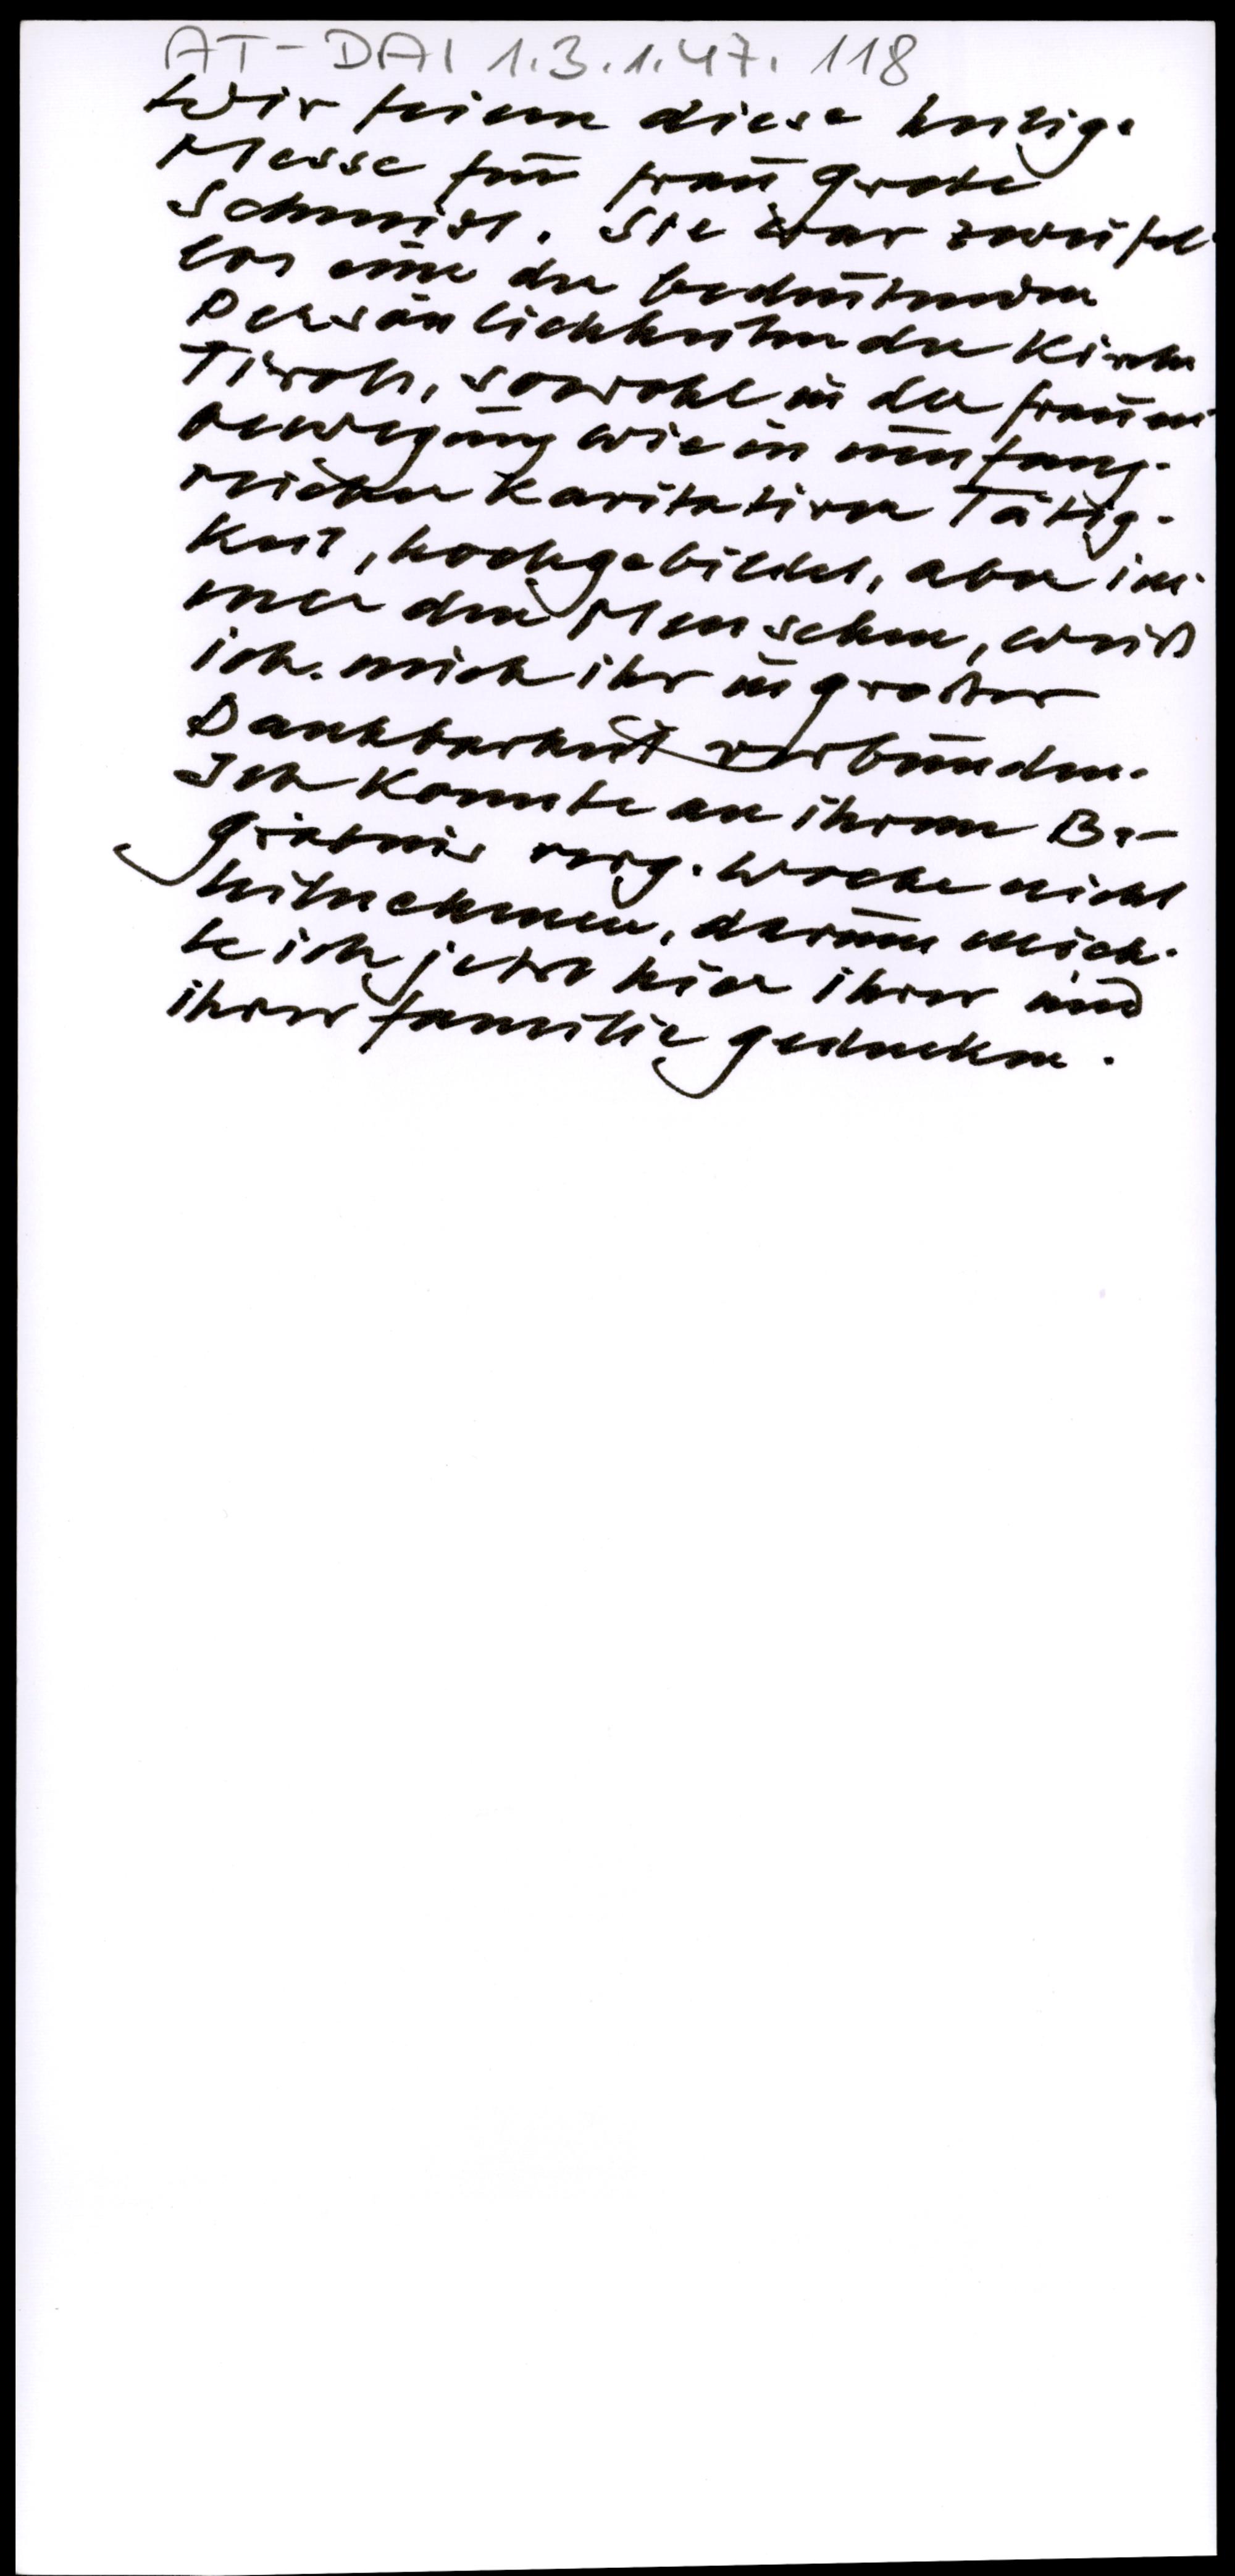 AT-DAI 1.3.1.47.118
Wir feiern diese heilige
Messe für Frau Grete
Schmidt. Sie war zweifel-
los eine der bedeutenden
Persönlichkeiten der Kirche
Tirols, sowohl in der Frauen-
bewegung wie in umfang-
reicher karitativer Tätig-
keit, hochgebildet, aber im-
mer den Menschen, weiß
ich mich ihr in großer
Dankbarkeit verbunden.
Ich konnte an ihrem Be-
gräbnis verg. Woche nicht
teilnehmen, darum möch-
te ich jetzt hier ihrer und
ihrer Familie gedenken.